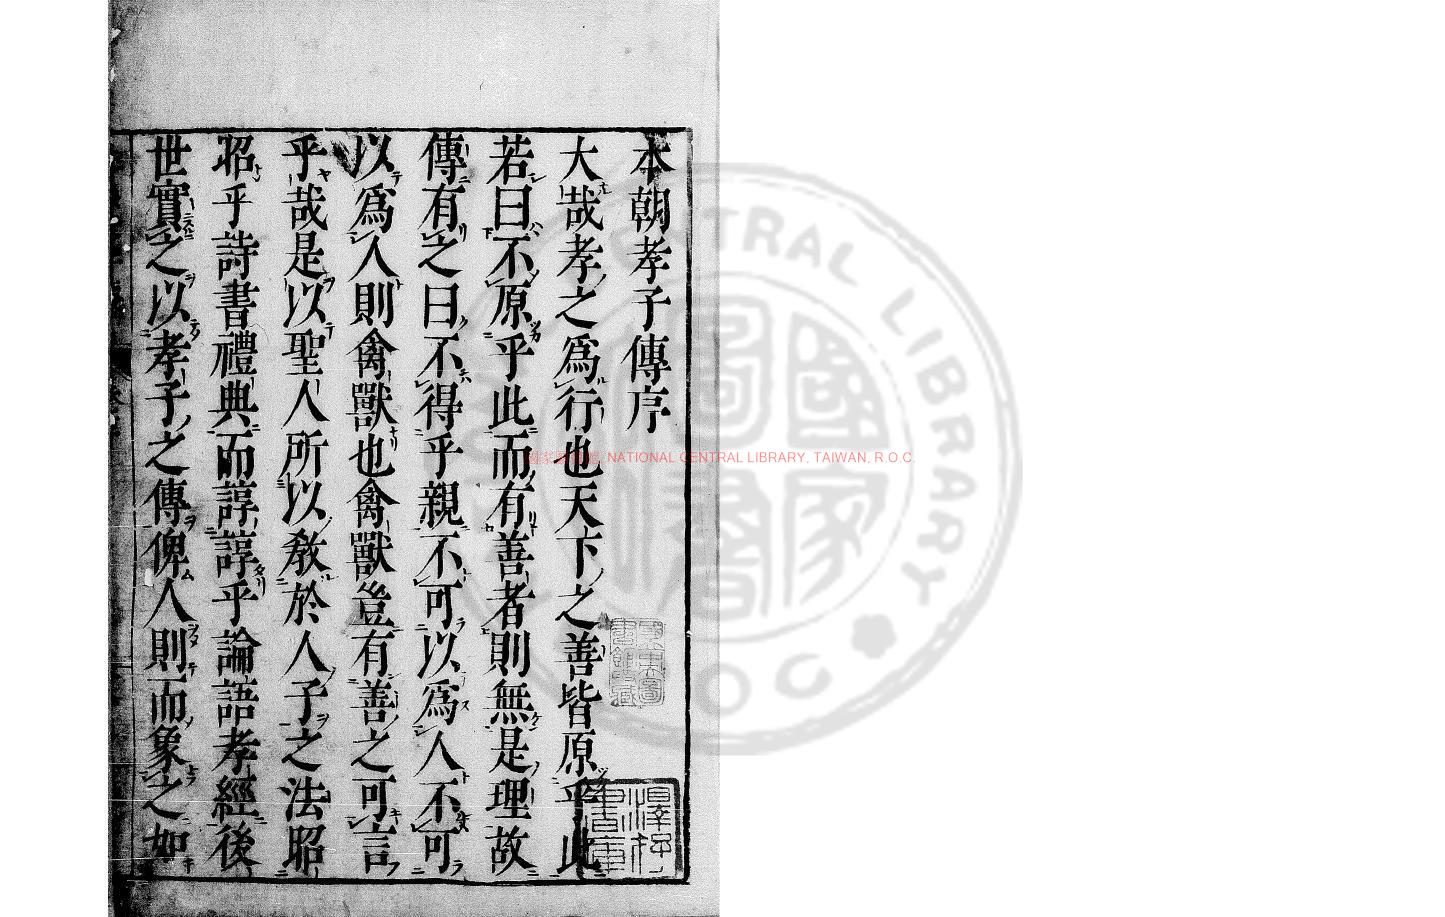 本朝孝子傳序
大哉孝之爲行也天下之善皆原乎此
若曰不原乎此而有善者則無是理故
傳有之曰不得乎親不可以爲人不可
以爲人則禽獸也禽獸豈有善之可言
乎哉是以聖人所以教於人子之法昭
昭乎詩書禮典而諄諄乎論語孝經後
世實之以孝子之傳俾人則而象之如
國家圖書館, NATIONAL CENTRAL LIBRARY, TAIWAN, R.O.C.